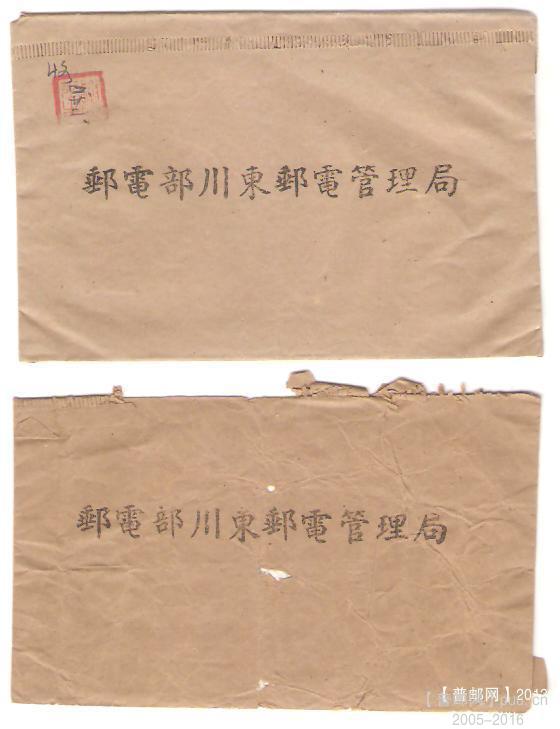 收
郵電部川東郵電管理局
郵電部川東郵電管理局
【普邮网】2012
2005-2016